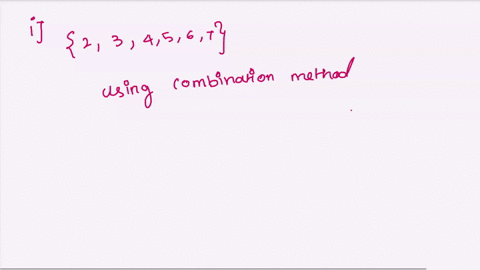 i] {2, 3, 4, 5, 6, 7}
using combination method